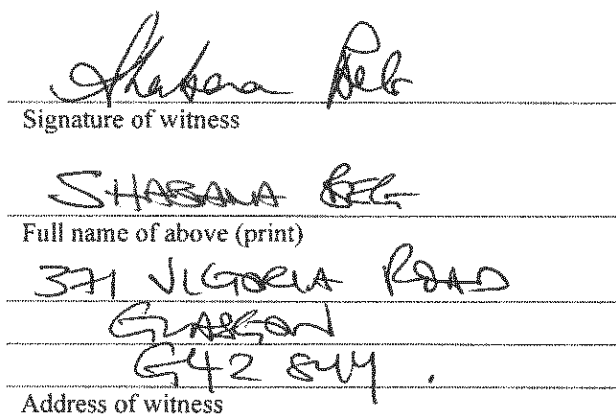 Shabana Beg
Signature of witness
SHABANA BEG
Full name of above (print)
371 VICTORIA ROAD
GLASGOW
G42 8YY.
Address of witness